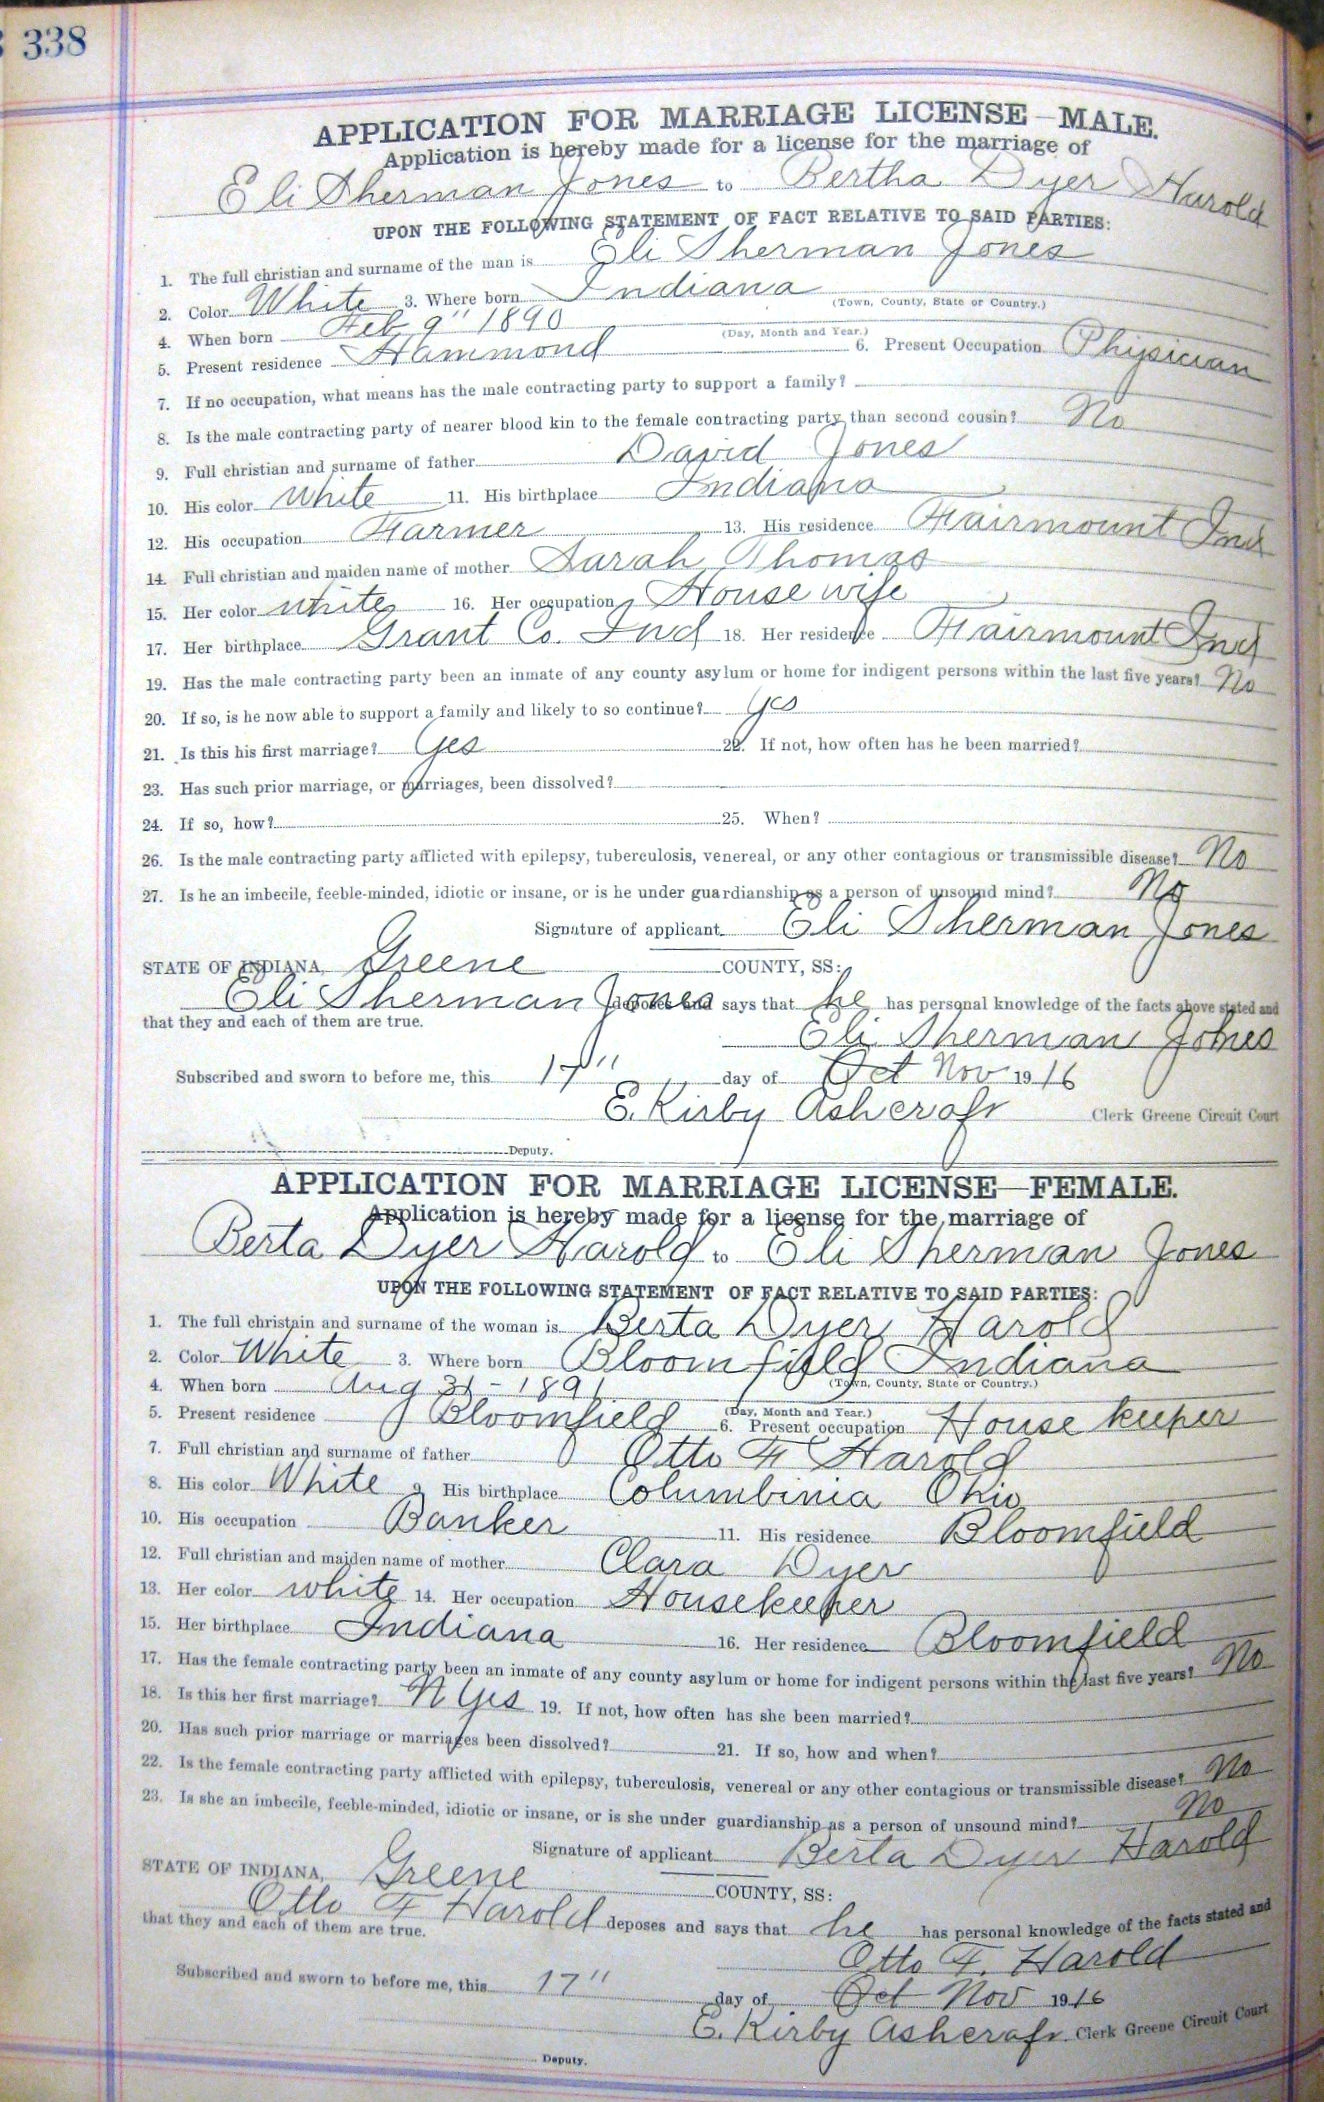 338
APPLICATION FOR MARRIAGE LICENSE—MALE.
Application is hereby made for a license for the marriage of
Eli Sherman Jones to Bertha Dyer Harold
UPON THE FOLLOWING STATEMENT OF FACT RELATIVE TO SAID PARTIES:
1. The full christian and surname of the man is Eli Sherman Jones
2. Color White 3. Where born Indiana
(Town, County, State or Country.)
4. When born Feb 9" 1890
(Day, Month and Year.)
5. Present residence Hammond 6. Present Occupation Physician
7. If no occupation, what means has the male contracting party to support a family?
8. Is the male contracting party of nearer blood kin to the female contracting party than second cousin? No
9. Full christian and surname of father David Jones
10. His color white 11. His birthplace Indiana
12. His occupation Farmer 13. His residence Fairmount Ind
14. Full christian and maiden name of mother Sarah Thomas
15. Her color white 16. Her occupation House wife
17. Her birthplace Grant Co. Ind 18. Her residence Fairmount Ind
19. Has the male contracting party been an inmate of any county asylum or home for indigent persons within the last five years? No
20. If so, is he now able to support a family and likely to so continue? yes
21. Is this his first marriage? Yes 22. If not, how often has he been married?
23. Has such prior marriage, or marriages, been dissolved?
24. If so, how? 25. When?
26. Is the male contracting party afflicted with epilepsy, tuberculosis, venereal, or any other contagious or transmissible disease? No
27. Is he an imbecile, feeble-minded, idiotic or insane, or is he under guardianship as a person of unsound mind? No
Signature of applicant Eli Sherman Jones
STATE OF INDIANA, Greene COUNTY, SS:
Eli Sherman Jones deposes and says that he has personal knowledge of the facts above stated and
that they and each of them are true.
Eli Sherman Jones
Subscribed and sworn to before me, this 17" day of Oct Nov 1916
E. Kirby Ashcraft Clerk Greene Circuit Court
Deputy.
APPLICATION FOR MARRIAGE LICENSE—FEMALE.
Application is hereby made for a license for the marriage of
Berta Dyer Harold to Eli Sherman Jones
UPON THE FOLLOWING STATEMENT OF FACT RELATIVE TO SAID PARTIES:
1. The full christain and surname of the woman is Berta Dyer Harold
2. Color White 3. Where born Bloomfield Indiana
(Town, County, State or Country.)
4. When born Aug 31 - 1891
(Day, Month and Year.)
5. Present residence Bloomfield 6. Present occupation House keeper
7. Full christian and surname of father Otto F Harold
8. His color White 9 His birthplace Columbinia Ohio
10. His occupation Banker 11. His residence Bloomfield
12. Full christian and maiden name of mother Clara Dyer
13. Her color white 14. Her occupation Housekeeper
15. Her birthplace Indiana 16. Her residence Bloomfield
17. Has the female contracting party been an inmate of any county asylum or home for indigent persons within the last five years? No
18. Is this her first marriage? N Yes 19. If not, how often has she been married?
20. Has such prior marriage or marriages been dissolved? 21. If so, how and when?
22. Is the female contracting party afflicted with epilepsy, tuberculosis, venereal or any other contagious or transmissible disease? No
23. Is she an imbecile, feeble-minded, idiotic or insane, or is she under guardianship as a person of unsound mind? No
Signature of applicant Berta Dyer Harold
STATE OF INDIANA, Greene COUNTY, SS:
Otto F Harold deposes and says that he has personal knowledge of the facts stated and
that they and each of them are true.
Otto F. Harold
Subscribed and sworn to before me, this 17" day of Oct Nov 1916
E. Kirby Ashcraft Clerk Greene Circuit Court
Deputy.